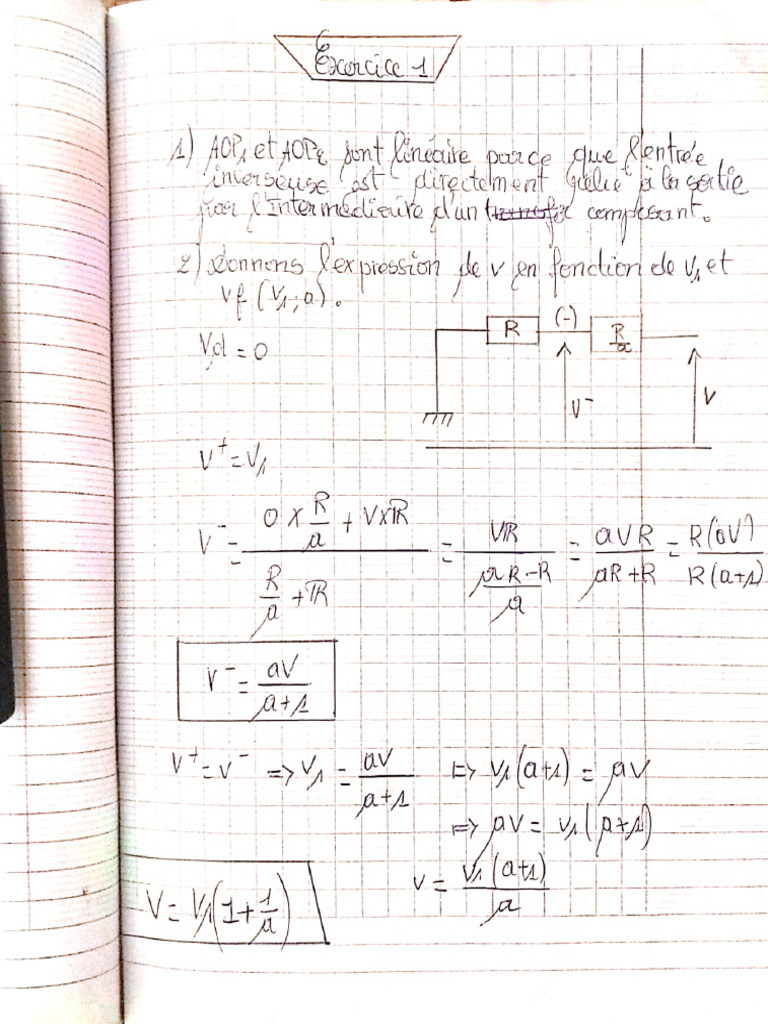 Exercice 1
1) AOP1 et AOP2 sont linéaire parce que l'entrée
inverseuse est directement rélié à la sortie
par l'intermédiaire d'un composant.
2) Donnons l'expression de v en fonction de V1 et
Vf (V1; a).
Vd = 0
R (-) R/a
V⁻ V
V⁺ = V1
V⁻ = (0 × R/a + V×R) / (R/a + R) = VR / ((aR-R)/a) = aVR / (aR+R) = R(aV) / R(a+1)
V⁻ = aV / (a+1)
V⁺ = V⁻ => V1 = aV / (a+1) => V1(a+1) = aV
=> aV = V1(a+1)
V = V1(a+1) / a
V = V1(1 + 1/a)